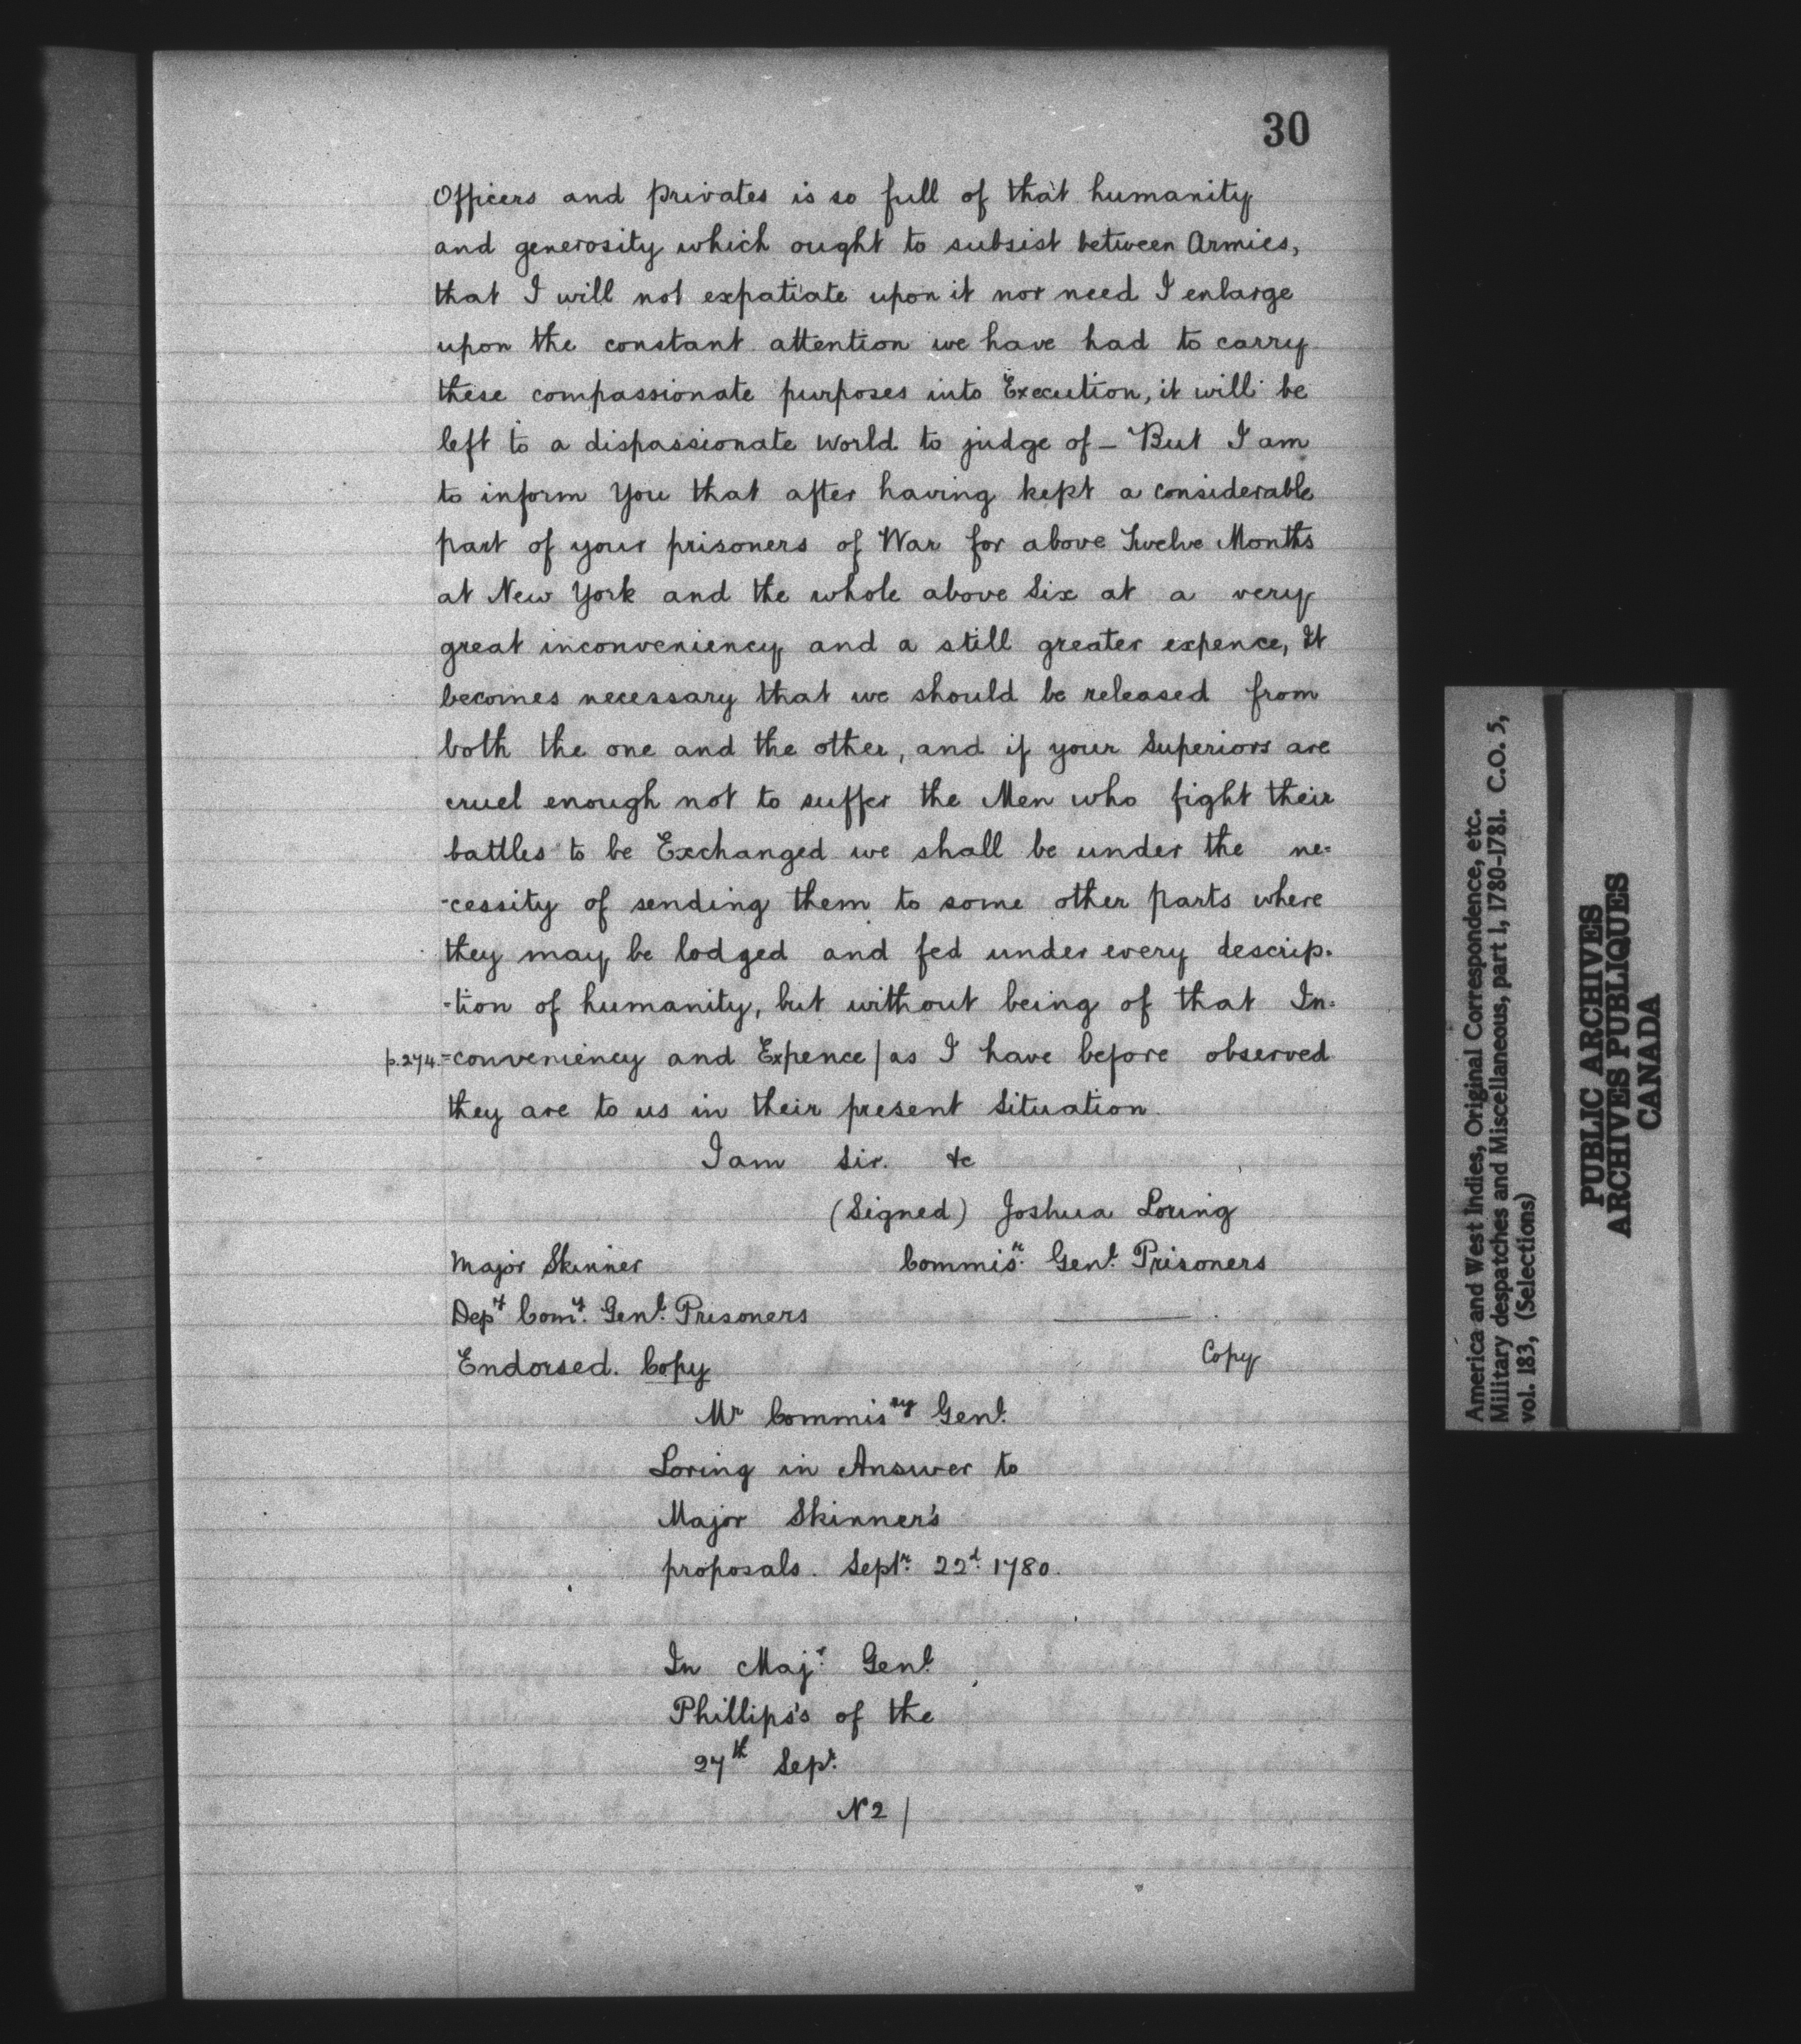 30
Officers and privates is so full of that humanity
and generosity which ought to subsist between Armies,
that I will not expatiate upon it nor need I enlarge
upon the constant attention we have had to carry
these compassionate purposes into Execution, it will be
left to a dispassionate World to judge of – But I am
to inform You that after having kept a considerable
part of your prisoners of War for above Twelve Months
at New York and the whole above Six at a very
great inconveniency and a still greater expence, It
becomes necessary that we should be released from
both the one and the other, and if your Superiors are
cruel enough not to suffer the Men who fight their
battles to be Exchanged we shall be under the ne=
-cessity of sending them to some other parts where
they may be lodged and fed under every descrip-
-tion of humanity, but without being of that In=
p.274.=conveniency and Expence / as I have before observed
they are to us in their present Situation.
I am Sir. &c
(Signed) Joshua Loring
Major Skinner Commisʳ. Genˡ. Prisoners
Depʸ Comʸ. Genˡ. Prisoners
Endorsed. Copy
Copy
Mʳ Commisʳʸ Genˡ.
Loring in Answer to
Major Skinner's
proposals. Septʳ. 22ᵈ. 1780.
In Majʳ. Genˡ.
Phillips's of the
27ᵗʰ Sepʳ.
N 2 /
America and West Indies, Original Correspondence, etc.
Military despatches and Miscellaneous, part 1, 1780-1781. C.O. 5,
vol. 183, (Selections)
PUBLIC ARCHIVES
ARCHIVES PUBLIQUES
CANADA